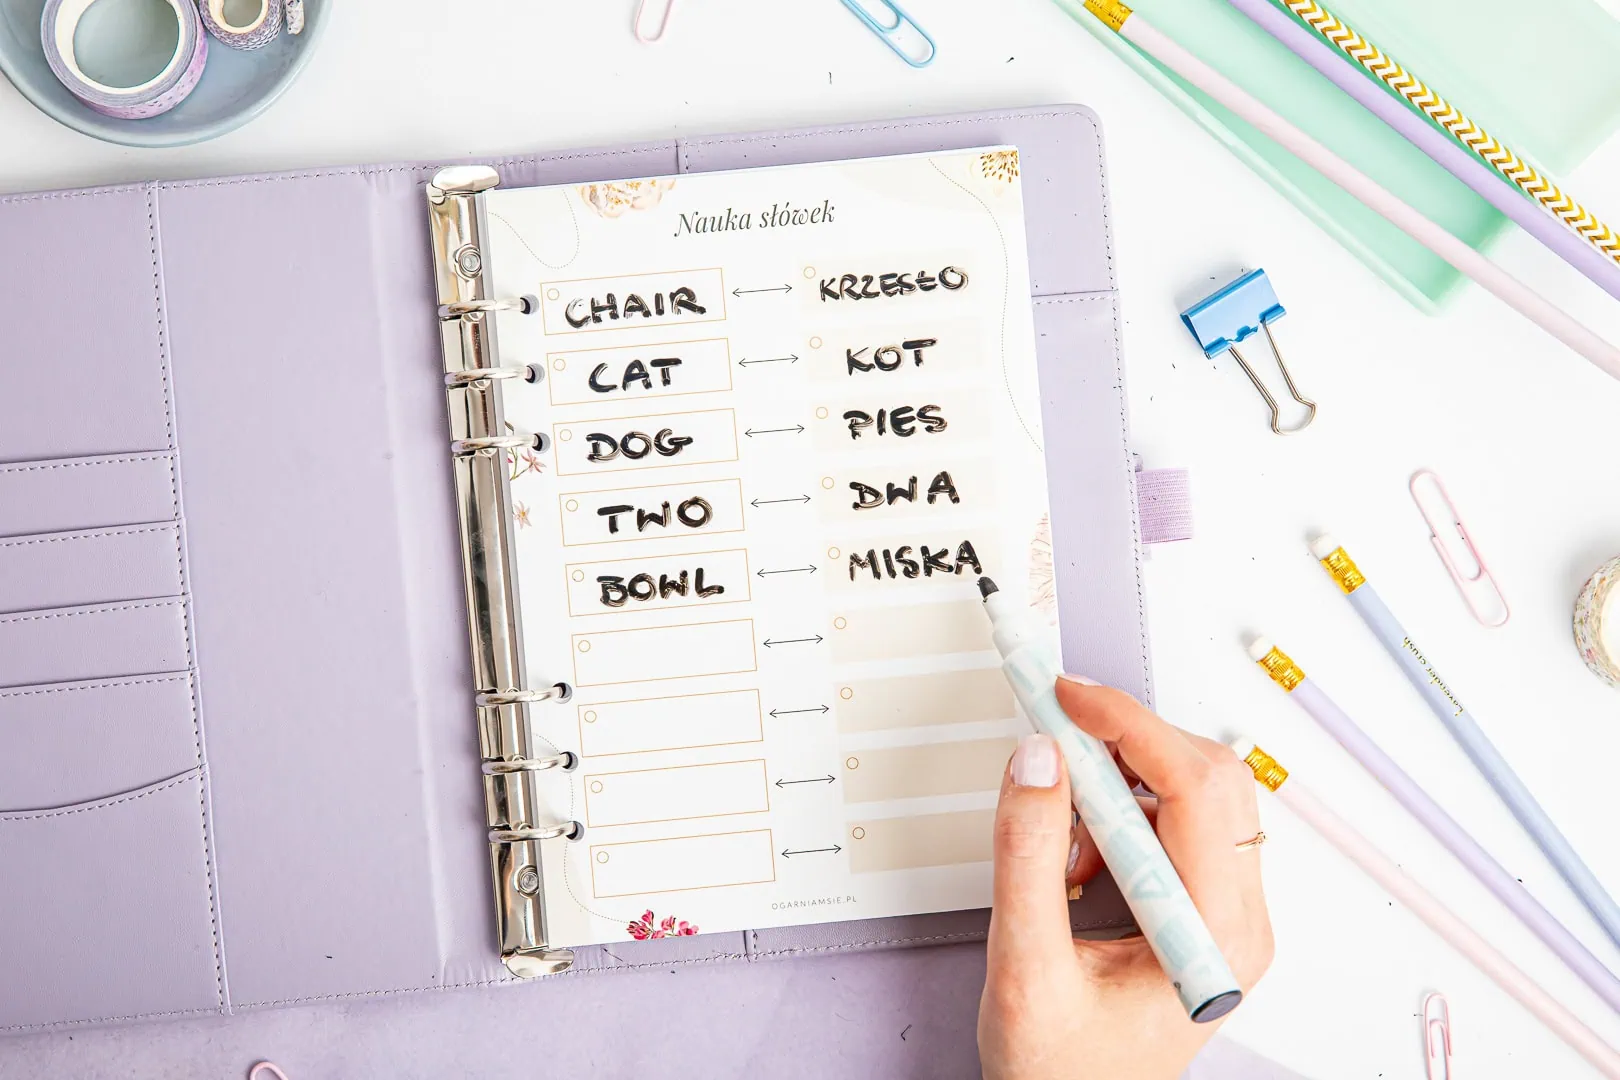 Nauka słówek
CHAIR KRZESŁO
CAT KOT
DOG PIES
TWO DWA
BOWL MISKA
OGARNIAMSIE.PL
Lavender crush